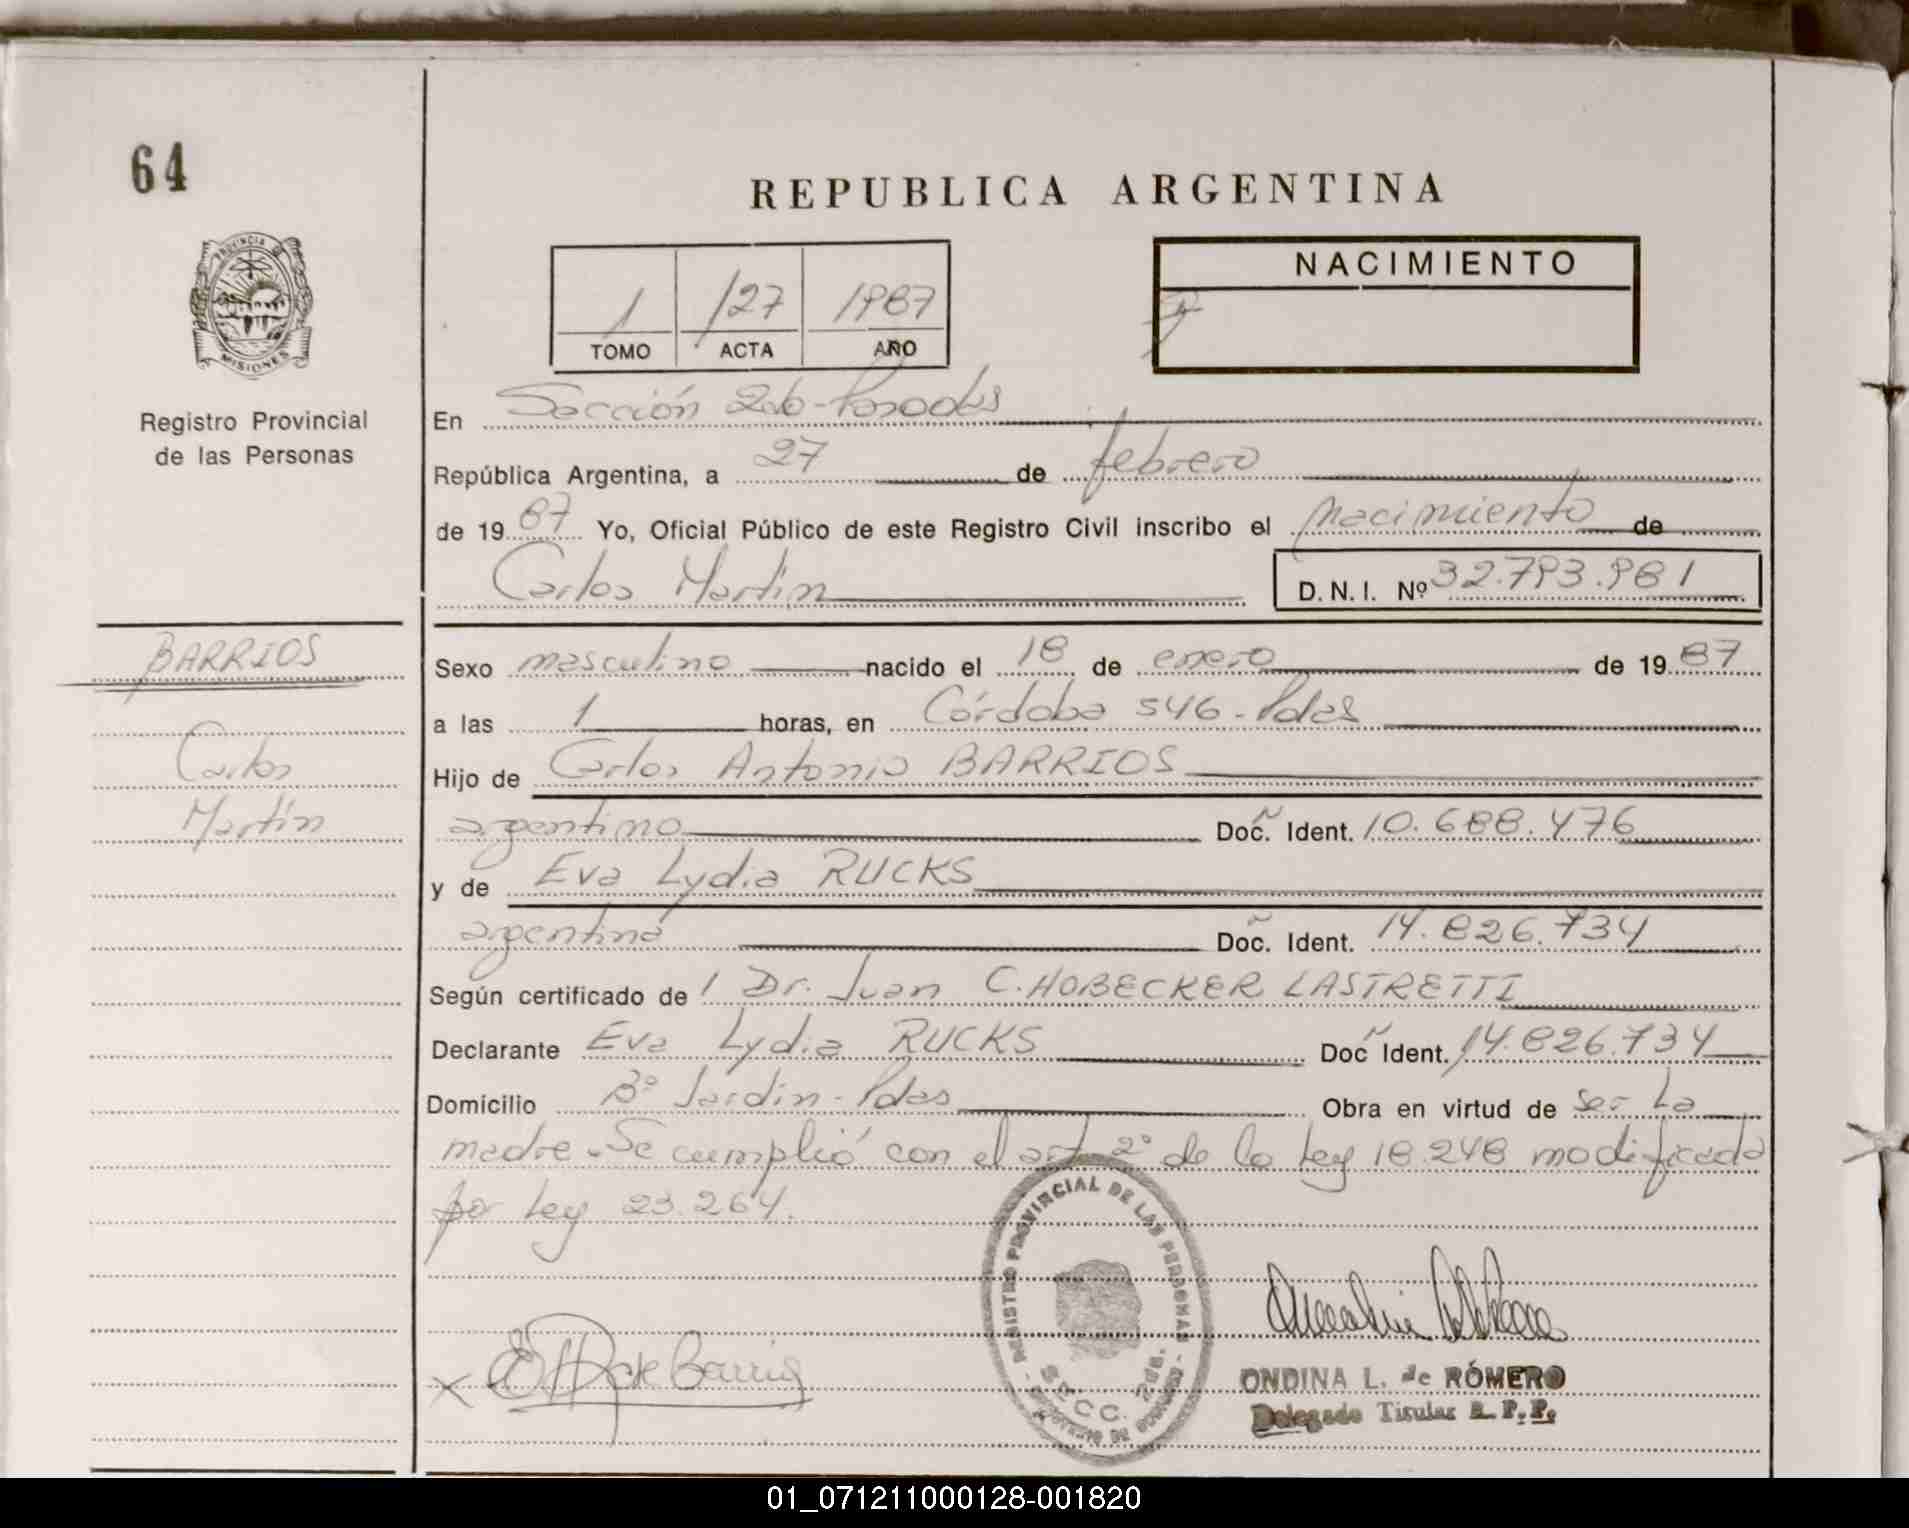 64
REPUBLICA ARGENTINA
PROVINCIA DE
MISIONES
Registro Provincial
de las Personas
1 127 1987
TOMO ACTA AÑO
NACIMIENTO
En Sección 2da-Posadas
República Argentina, a 27 de febrero
de 1987 Yo, Oficial Público de este Registro Civil inscribo el Nacimiento de
Carlos Martín D.N.I. Nº 32.793.981
BARRIOS
Carlos
Martín
Sexo masculino nacido el 18 de enero de 1987
a las 1 horas, en Córdoba 546-Pdas
Hijo de Carlos Antonio BARRIOS
argentino Doc. Ident. 10.688.476
y de Eva Lydia RUCKS
argentina Doc. Ident. 14.826.734
Según certificado de l Dr. Juan C. HOBECKER LASTRETTI
Declarante Eva Lydia RUCKS Doc Ident. 14.826.734
Domicilio Bº Jardín-Pdas Obra en virtud de ser La
madre. Se cumplió con el art 2° de la Ley 18.248 modificada
por Ley 23.264.
REGISTRO PROVINCIAL DE LAS PERSONAS
SECC. 2DA.
X
ONDINA L. de RÓMERO
Delegado Titular R. P. P.
01_071211000128-001820